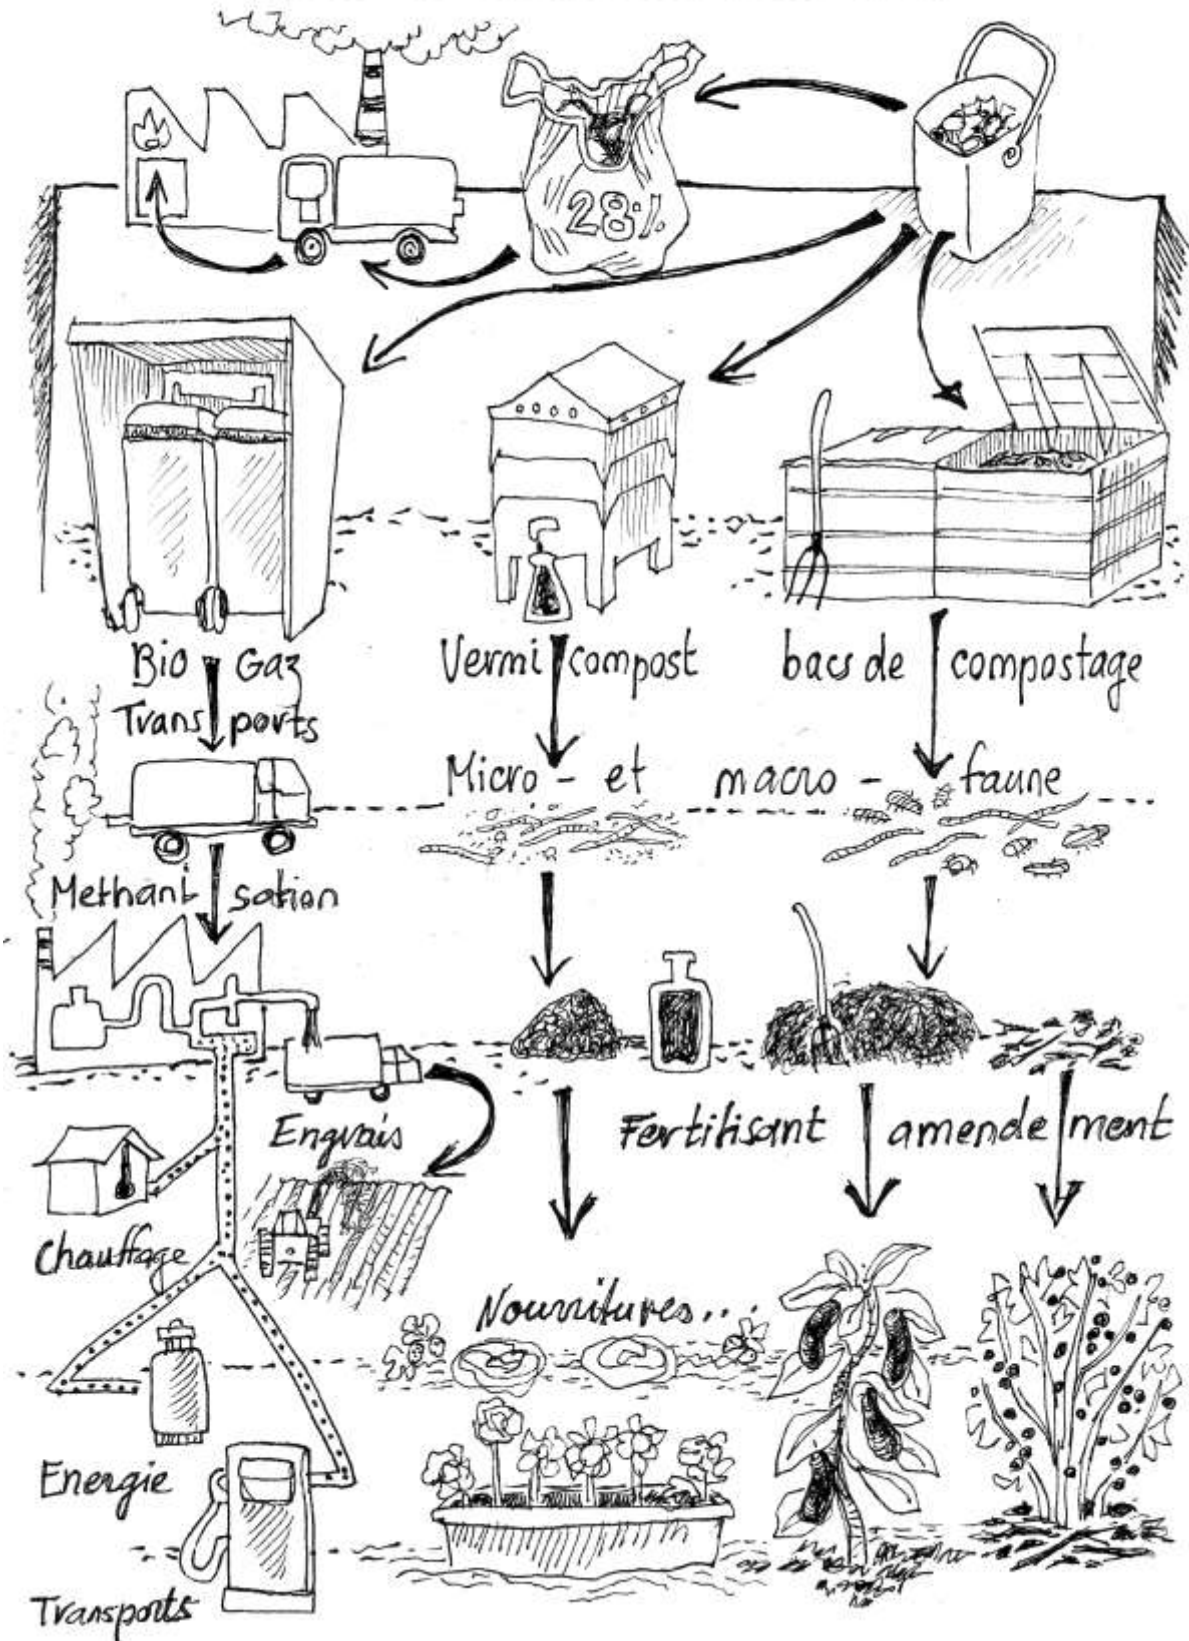 28%
Bio Gaz
Transports
Vermi compost
bacs de compostage
Micro - et macro - faune
Methanisation
Engrais
Fertilisant amendement
Chauffage
Nourritures...
Energie
Transports